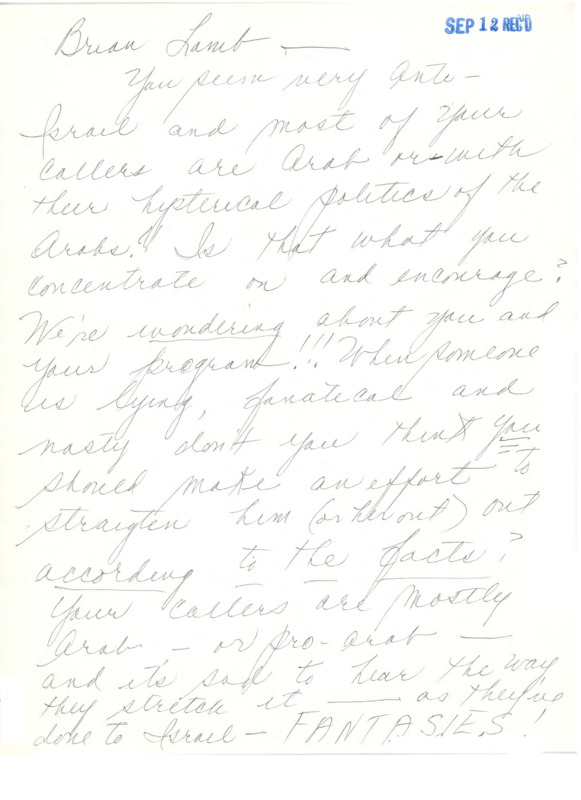 SEP 12 REC'D
Brian Lamb —
You seem very anti-
Israel and most of your
callers are Arab or—with
their hysterical politics of the
Arabs." Is that what you
concentrate on and encourage?
We're wondering about you and
your program!!! When someone
is lying, fanatical and
nasty don't you think you
should make an effort to
straigten him (or her out) out
according to the facts?
Your callers are mostly
Arab — or pro-arab —
and it's sad to hear the way
they stretch it — as they've
done to Israel — FANTASIES!